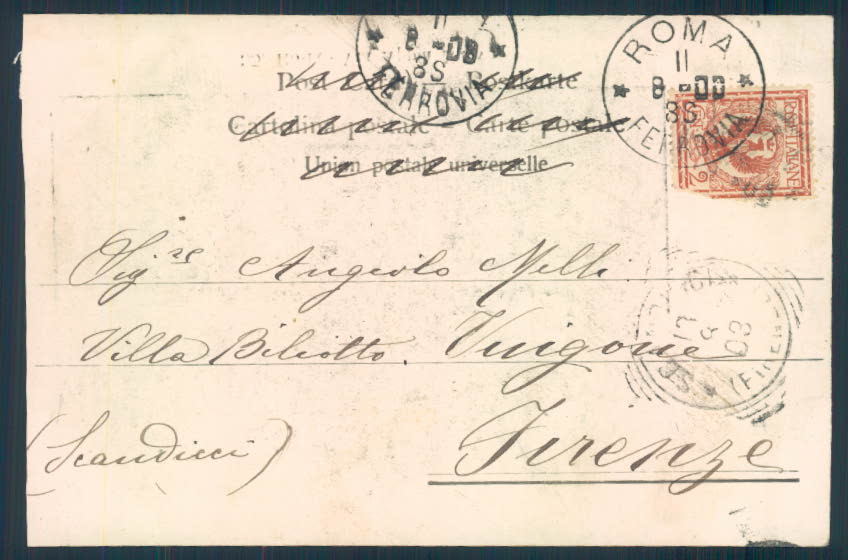 11
8 - 03
8S
FERROVIA
ROMA
11
8 - 03
8S
FERROVIA
Postkarte
Cartolina postale - Carte postale
Union postale universelle
POSTE ITALIANE
2
Sigre Angiolo Melli
Villa Biliotto. Vingone
(Scandicci)
Firenze
12
8
03
(FIRENZE)